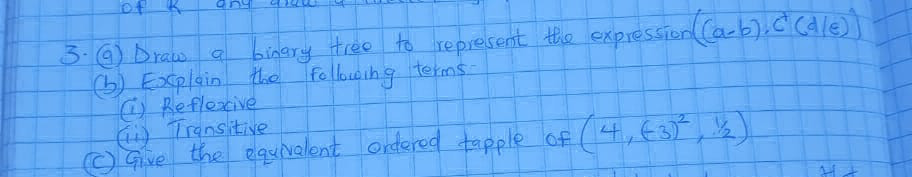 of K and draw a
3. (a) Draw a binary tree to represent the expression ((a-b).C (d/e))
(b) Explain the following terms.
(i) Reflexive
(ii) Transitive
(c) Give the equivalent ordered tapple of (4, (-3)², ½)